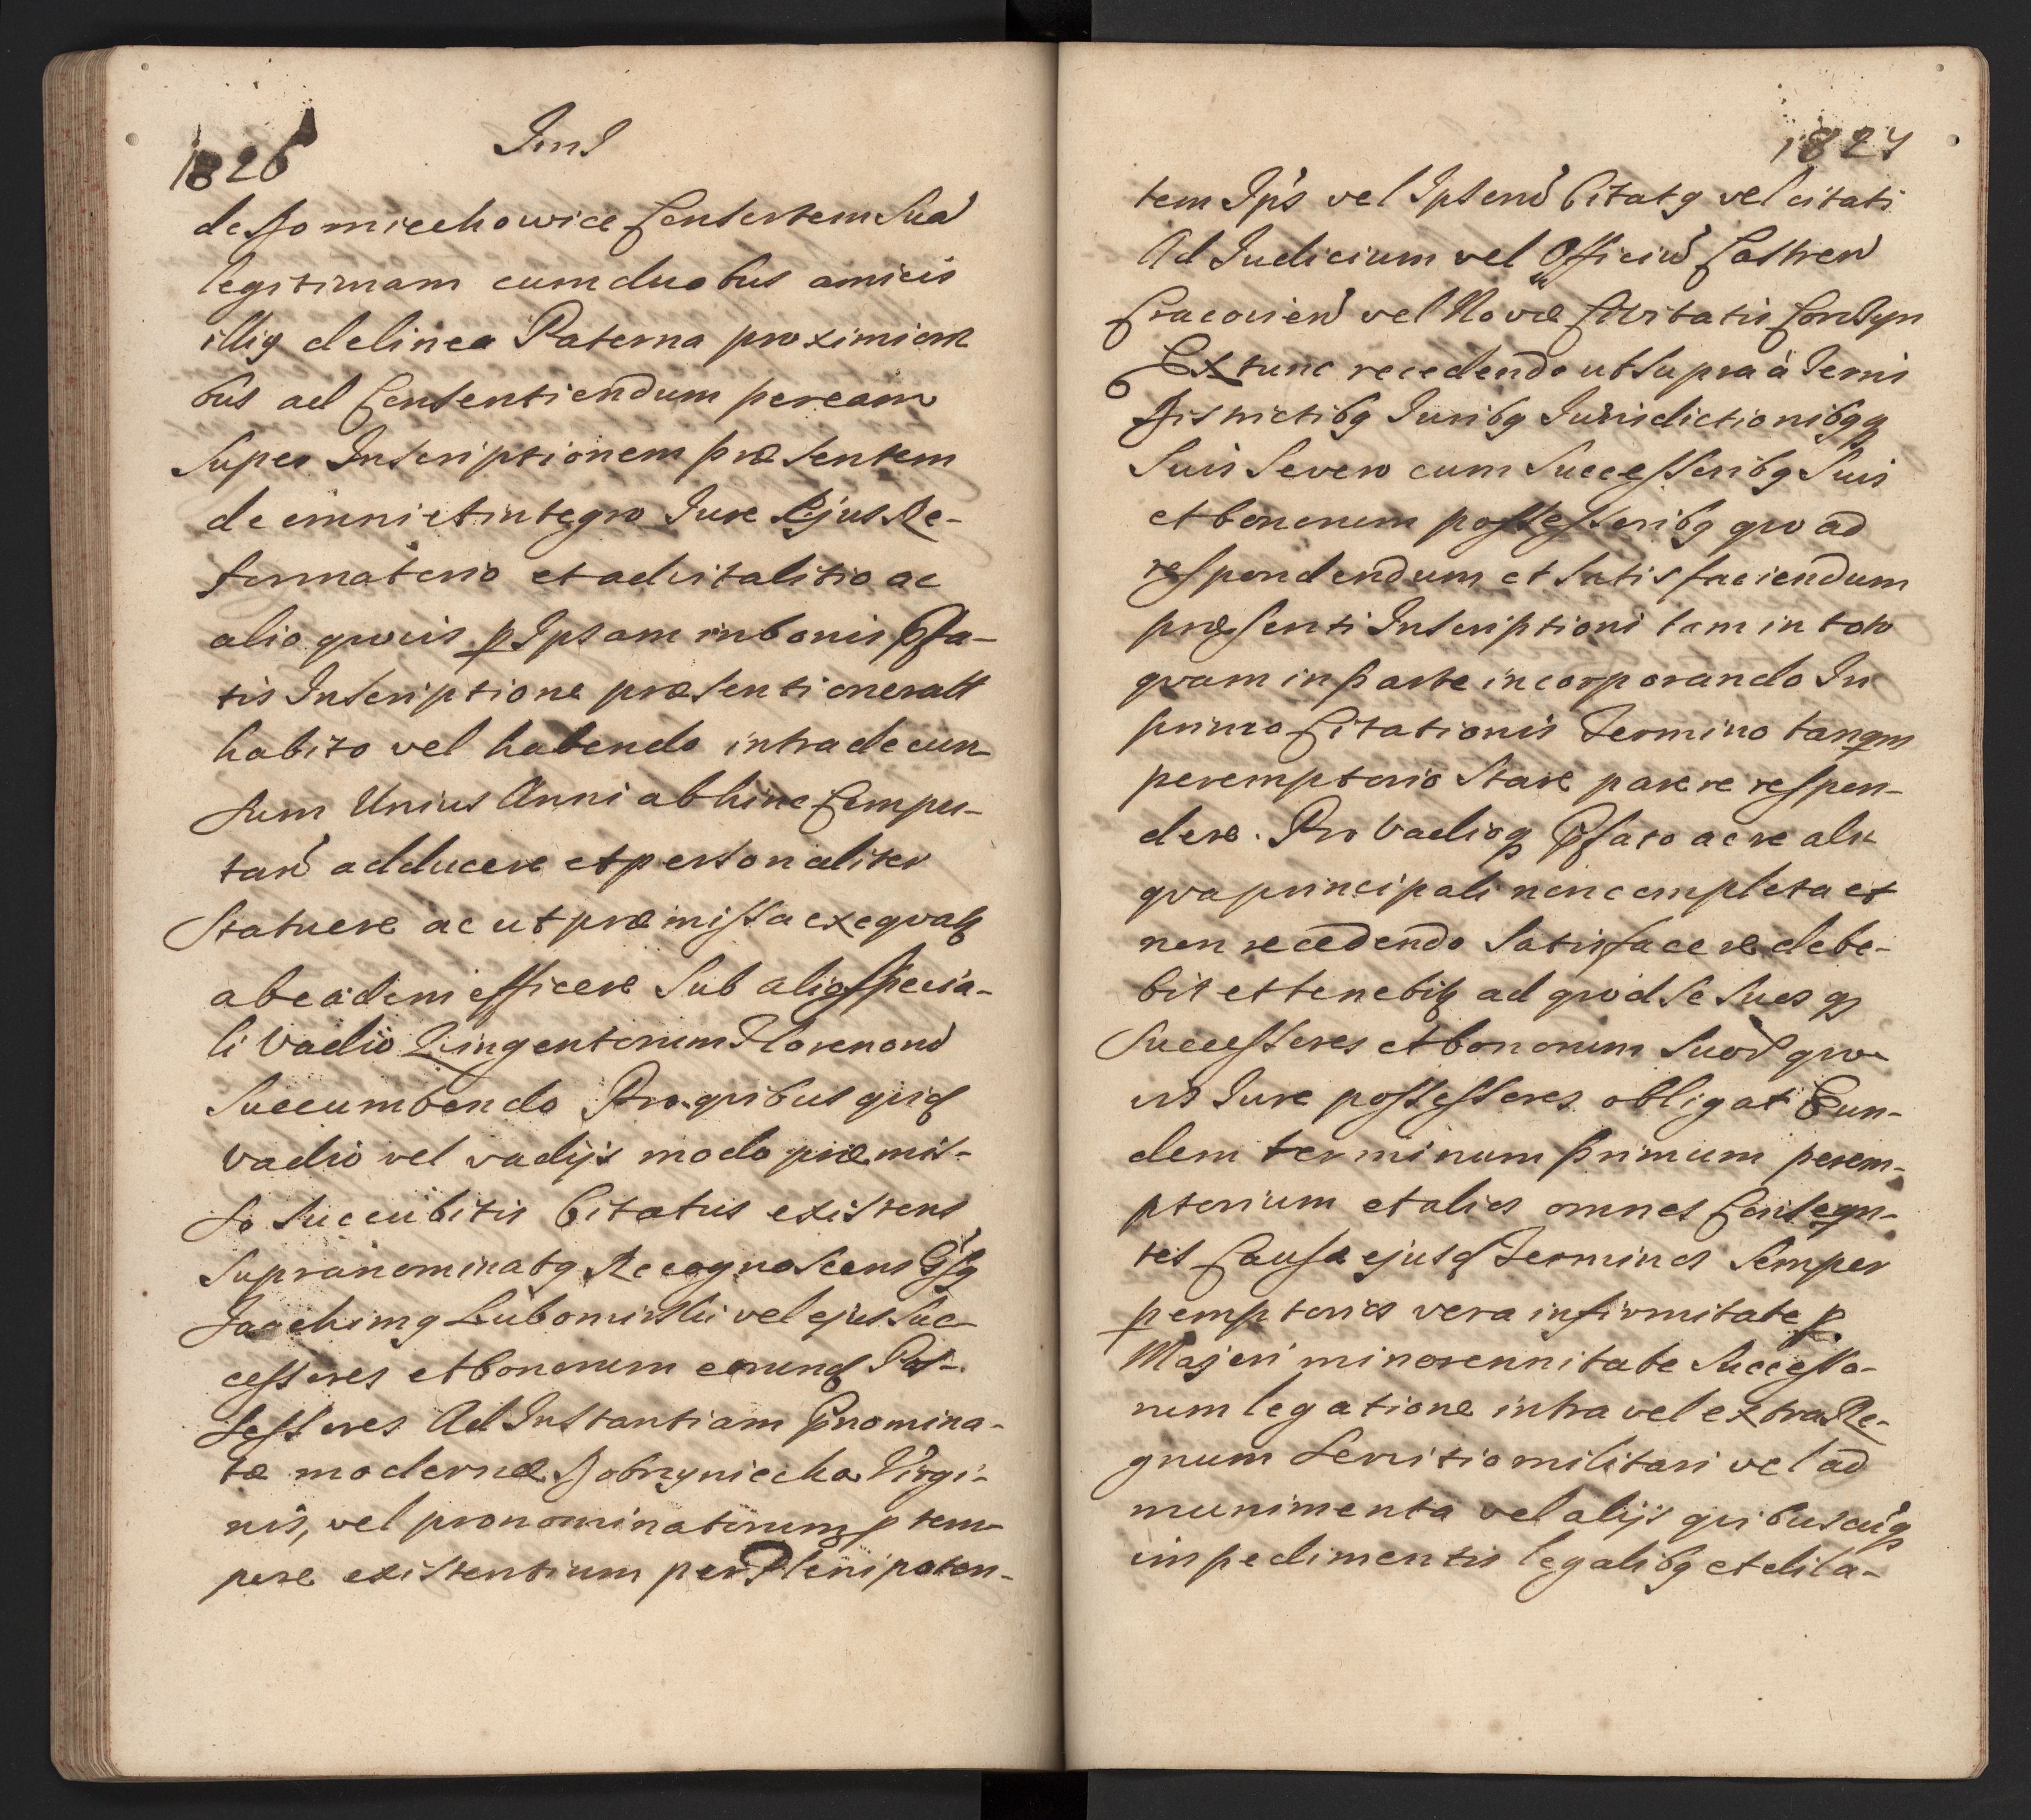 1826
Ind
de Domiechowice Consortem Suã
legitimam cum duobus amicis
illig de linea Paterna proximiori
bus ad Consentiendum per eam
Super Inscriptionem præsentem
de omni et integro Jure Ejus Re-
formatorio et advitalitio ac
alio qvovis p Ipsam in bonis Pfa-
tis Inscriptione præsenti oneratt
habito vel habendo intra decur-
sum Unius Anni ab hinc Compu-
tand adducere et personaliter
Statuere ac ut præmissa exeqvatz
ab eadem efficere Sub alio Specia-
li Vadio Qvingentorum Florenorũ
Succumbendo Pro qvibus qvid
Vadio vel vadijs modo præmis-
so Succubitis Citatus existens
Supranominatg Recognoscens Gsg
Joachimg Lubomirski vel ejus Suc-
cessores et bonorum eorund Pos-
sessores Ad Instantiam Pnomina-
tæ modernæ Dobrzyniecka Virgi-
nis, vel pronominatorum p tem-
pore existentium per Plenipoten-
1827
tem Ips vel Ipsorũ Citatg vel citati
Ad Judicium vel Officiũ Castren
Cracovien vel Novæ Civitatis Corczyn
Ex tunc recedendo ut Supra à Terris
Districtibg Juribg Jurisdictionibgq
Suis Severo cum Successoribg Suis
et bonorum possessoribg qvo ad
respondendum et Satisfaciendum
præsenti Inscriptioni tam in toto
qvam in parte incorporando In
primo Citationis Termino tanqm
peremptorio Stare parere respon-
dere. Pro Vadioq Pfato ac re ali-
qva principali non completa et
non recedendo Satisfacere debe-
bit et tenebitz ad qvod Se Suos q
Successores et bonorum Suor qvo-
vis Jure possessores obligat Eun-
dem terminum primum perem-
ptorium et alios omnes Conseqn-
tes Causæ ejusd Terminos Semper
pemptorios vera infirmitate p
Majori minorennitate Successo-
rum legatione intra vel extra Re-
gnum Servitio militari vel ad
munimenta vel alijs qvibuscũq
impedimentis legalibg et dila-